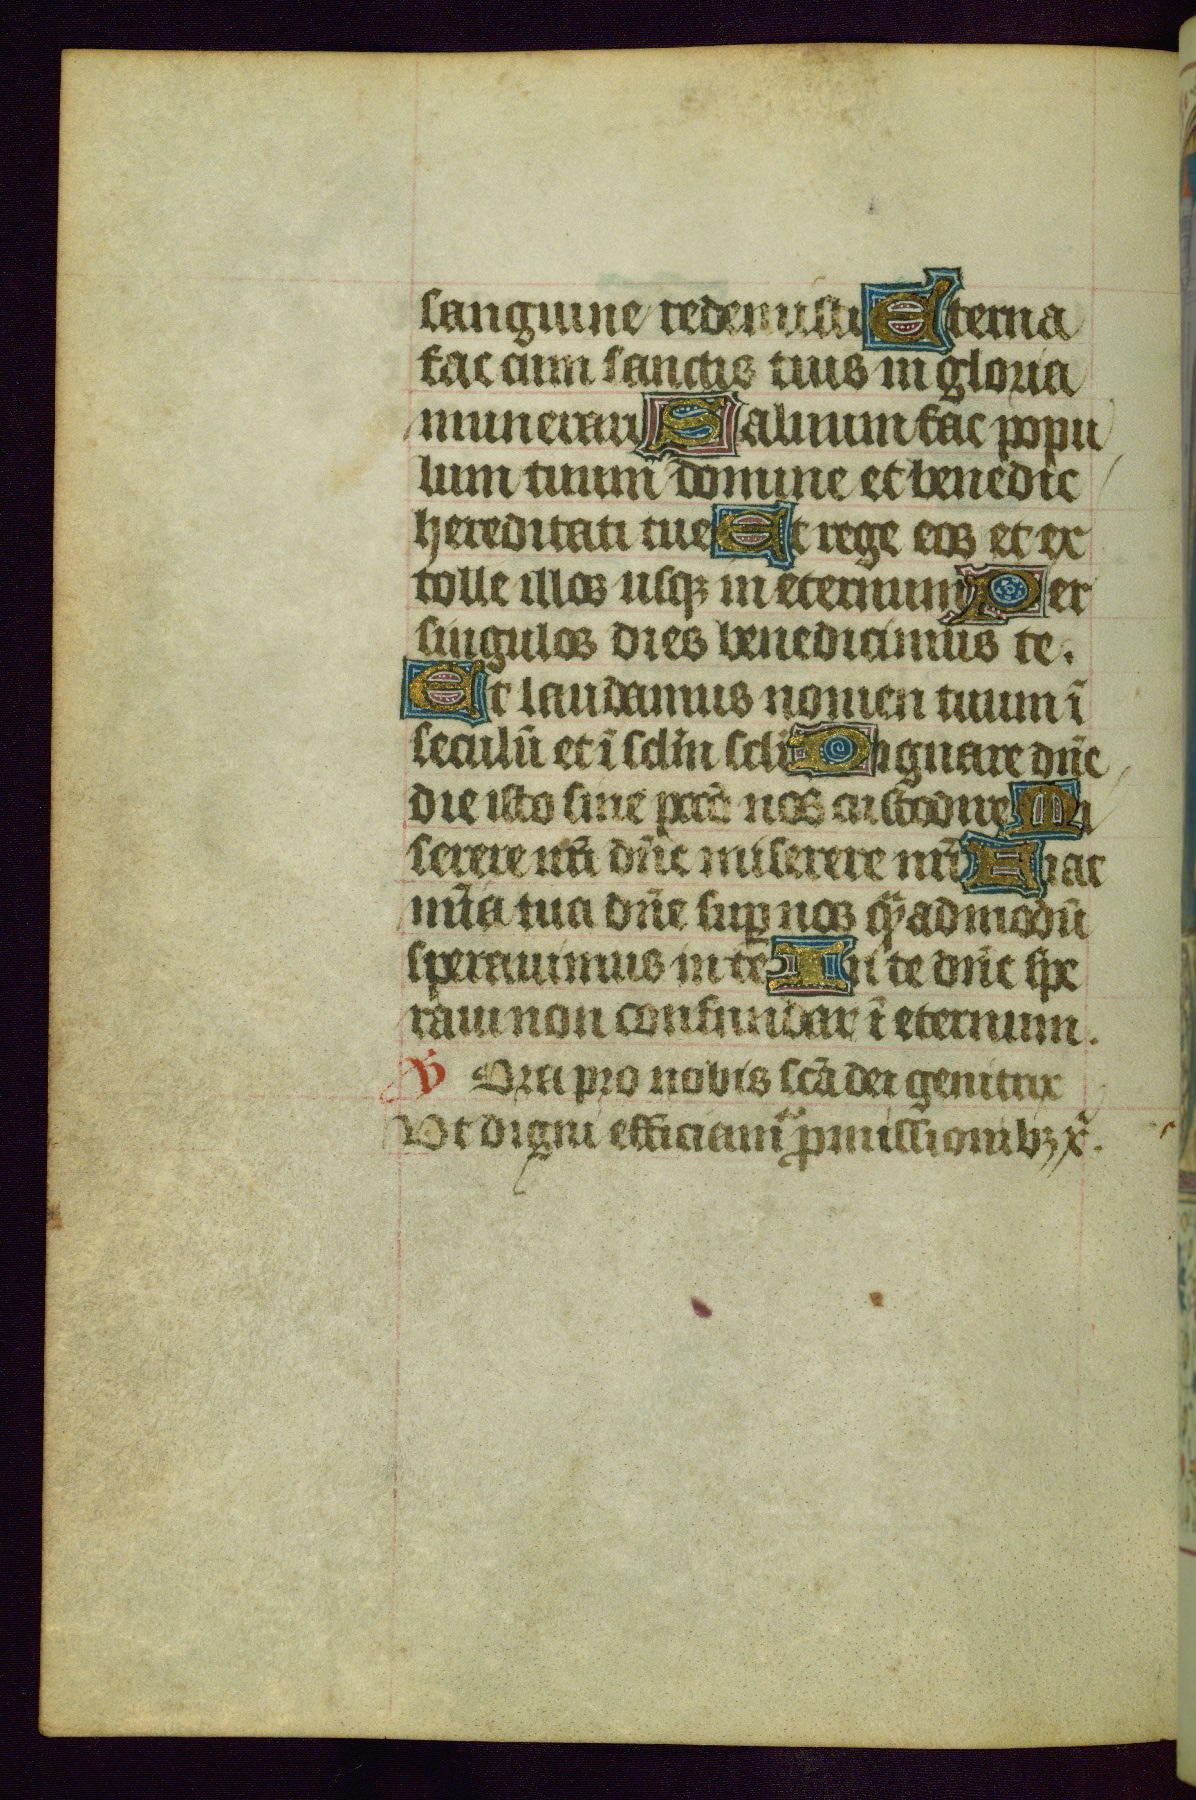 sanguine redemisti Eterna
fac cum sanctis tuis in gloria
munerari Saluum fac popu
lum tuum domine et benedic
hereditati tue Et rege eos et ex
tolle illos usqꝫ in eternum Per
singulos dies benedicimus te.
Et laudamus nomen tuum ī
seculū et ī sclm̄ scli Dignare dn̄e
die isto sine pccō nos custodire Mi
serere nr̄i dn̄e miserere nr̄i Fiat
mīa tua dn̄e suꝑ nos qͣ̄admodū
sperauimus in te In te dn̄e spe
raui non confundar ī eternum.
V̄ Ora pro nobis scā dei genitrix
Vt digni efficiamͬ ꝓmissionibꝫ xͥ.